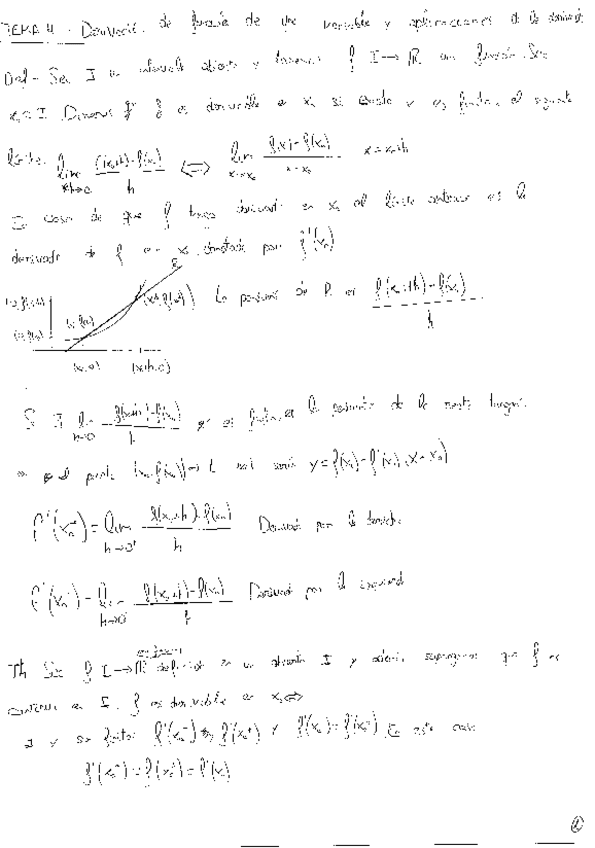 TEMA 4 - Derivació. de función de una variable y aplicaciones d la derivad
Def - Sea I un intervalo abierto y tenemos f I → R una función. Sea
x₀ ∈ I. Diremos q f es derivable en x₀ si existe y es finito el siguiente
límite: lim h→0 f(x₀+h)-f(x₀) / h <=> lim x→x₀ f(x)-f(x₀) / x-x₀ x = x₀+h
En caso de que f tenga derivada en x₀ al límite anterior es la
derivada de f en x₀ denotada por f'(x₀)
R
La pendiente de R es f(x₀+h)-f(x₀) / h
(x₀,0) (x₀+h,0)
Si ∃ lim h→0 f(x₀+h)-f(x₀) / h y es finito, es la pendiente de la recta tangen.
el punto (x₀, f(x₀)) sería y = f(x₀) - f'(x₀)·(x-x₀)
f'(x₀⁺) = lim h→0⁺ f(x₀+h)-f(x₀) / h Derivada por la derecha
f'(x₀⁻) = lim h→0⁻ f(x₀+h)-f(x₀) / h Derivada por la izquierd
Th Sea f I → R definida en un abierto I y además supongamos que f es
continua en I. f es derivable en x₀ <=>
∃ y son finitos f'(x₀⁻) y f'(x₀⁺) y f'(x₀⁻) = f'(x₀⁺) En este caso
f'(x₀⁻) = f'(x₀⁺) = f'(x₀)